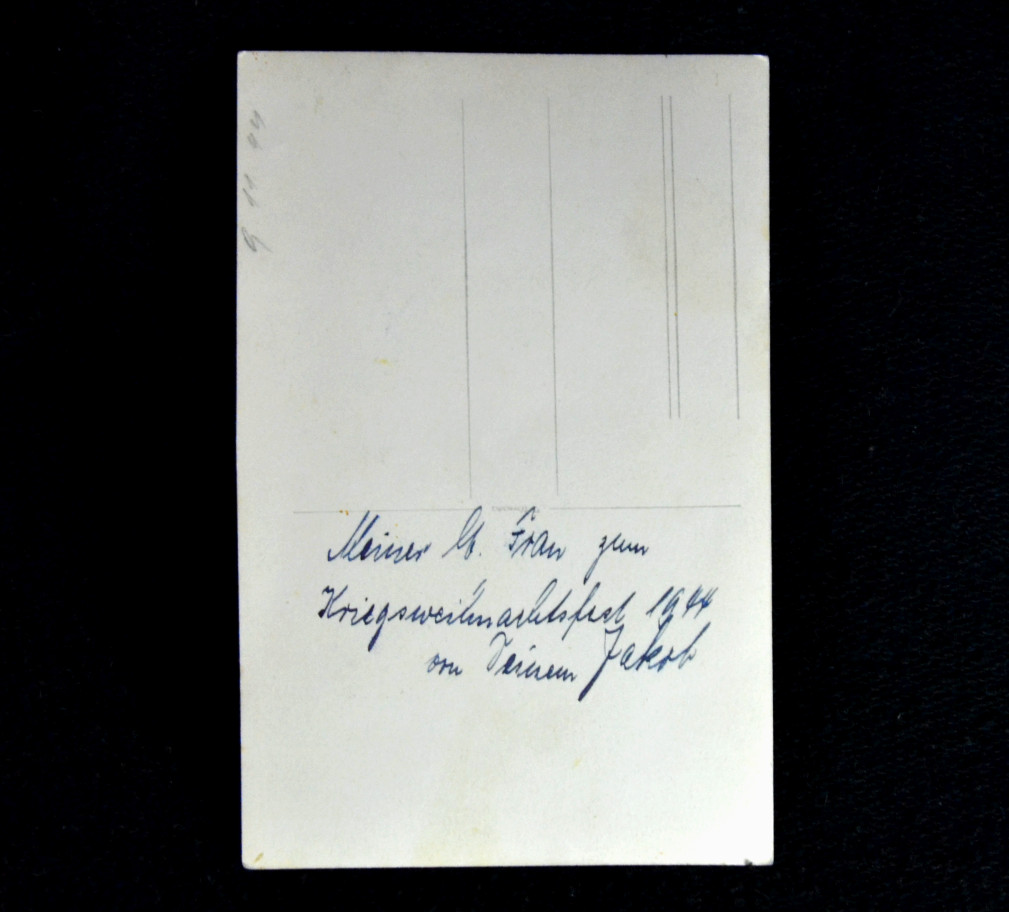 Meiner lb. Frau zum
Kriegsweihnachtsfest 1944
von Deinem Jakob
9 11 44